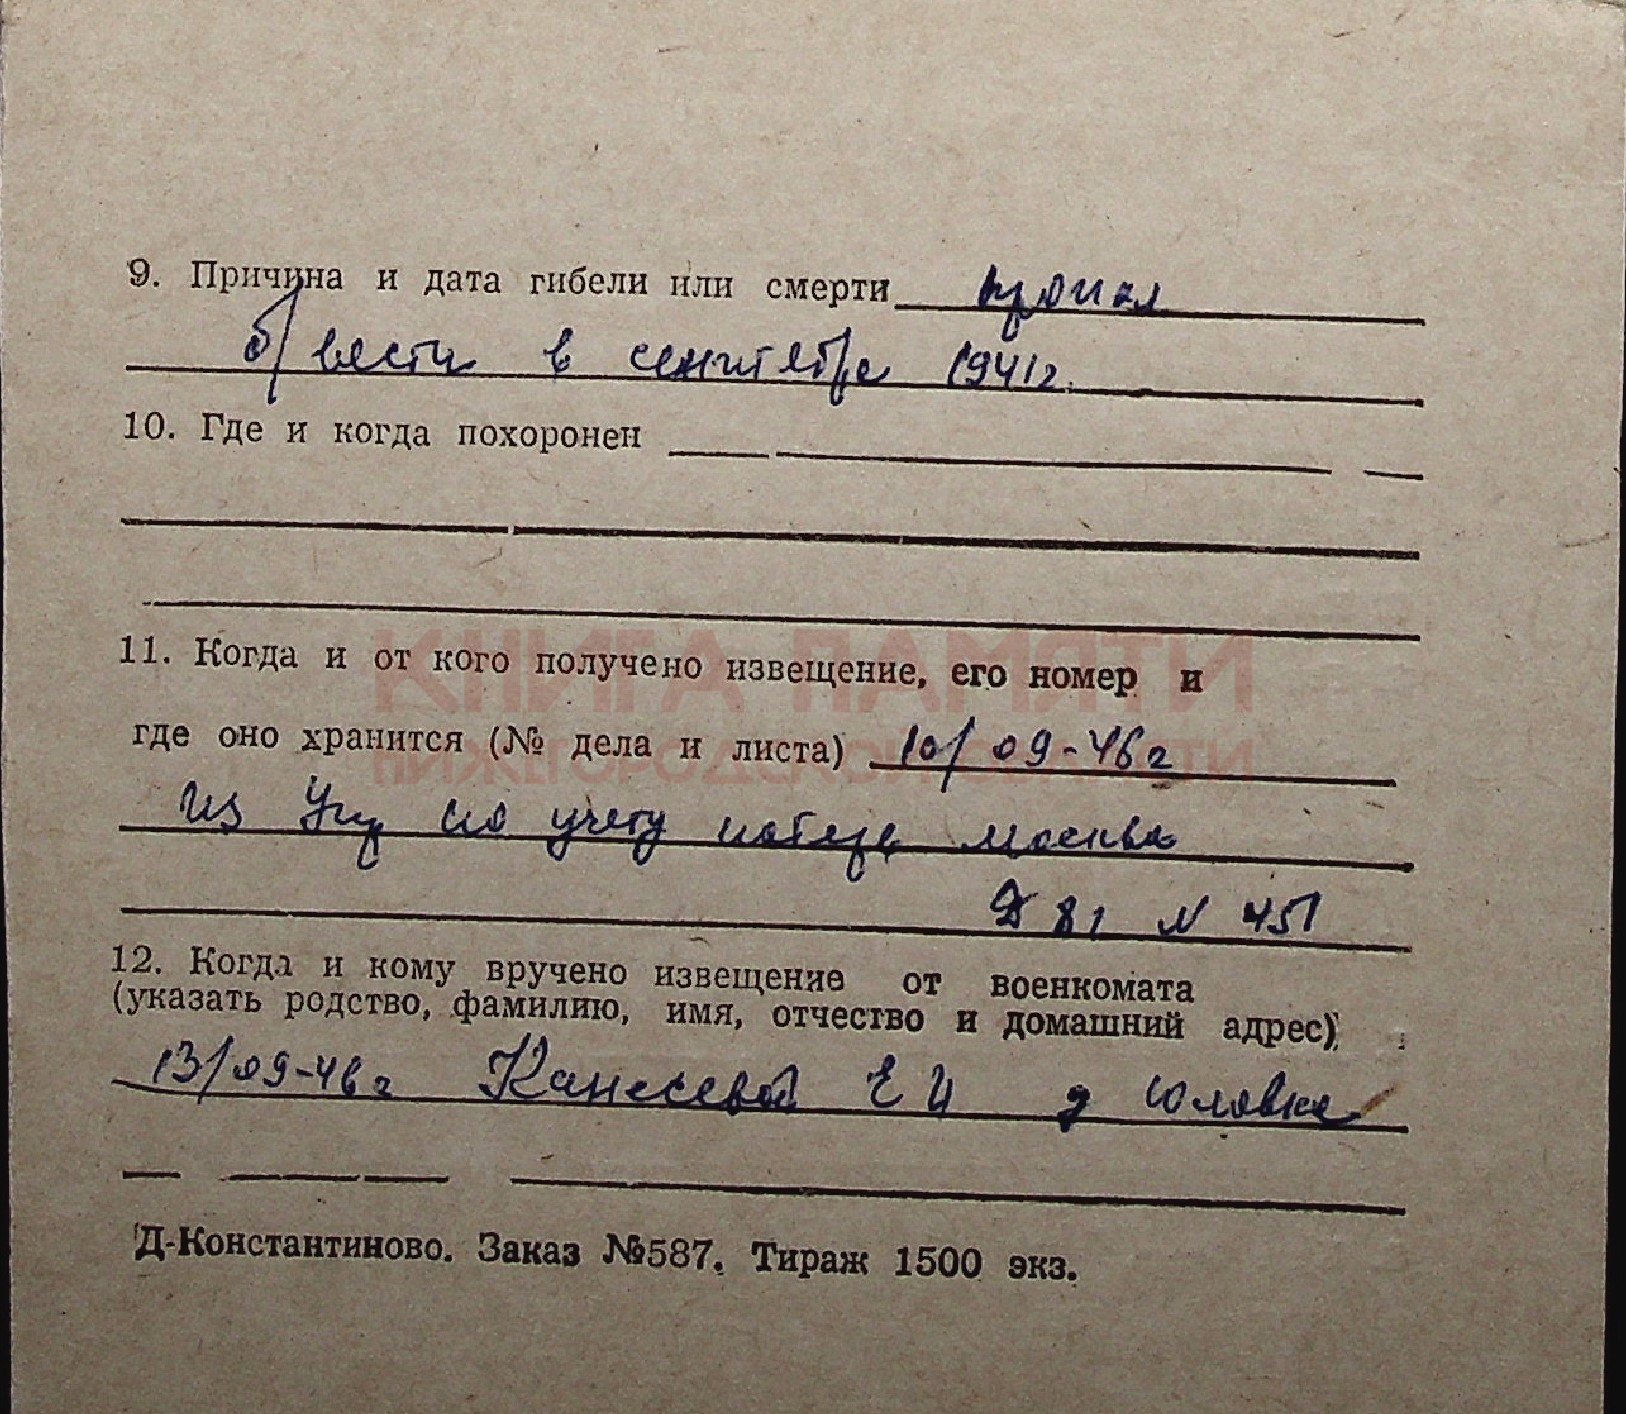 9. Причина и дата гибели или смерти пропал
б/вести в сентябре 1941г.
10. Где и когда похоронен
КНИГА ПАМЯТИ
11. Когда и от кого получено извещение, его номер и
НИЖЕГОРОДСКОЙ ОБЛАСТИ
где оно хранится (№ дела и листа) 10/09-46г
из Упр по учету потерь Москва
Д 81 N 451
12. Когда и кому вручено извещение от военкомата
(указать родство, фамилию, имя, отчество и домашний адрес)
13/09-46г Е И д
Д-Константиново. Заказ №587. Тираж 1500 экз.